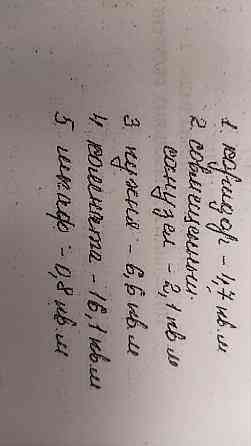 1. коридор - 1,7 кв.м
2. совмещенный
санузел - 2,1 кв м
3. кухня - 6,6 кв м
4. комната - 16,1 кв м
5. шкаф - 0,8 кв.м